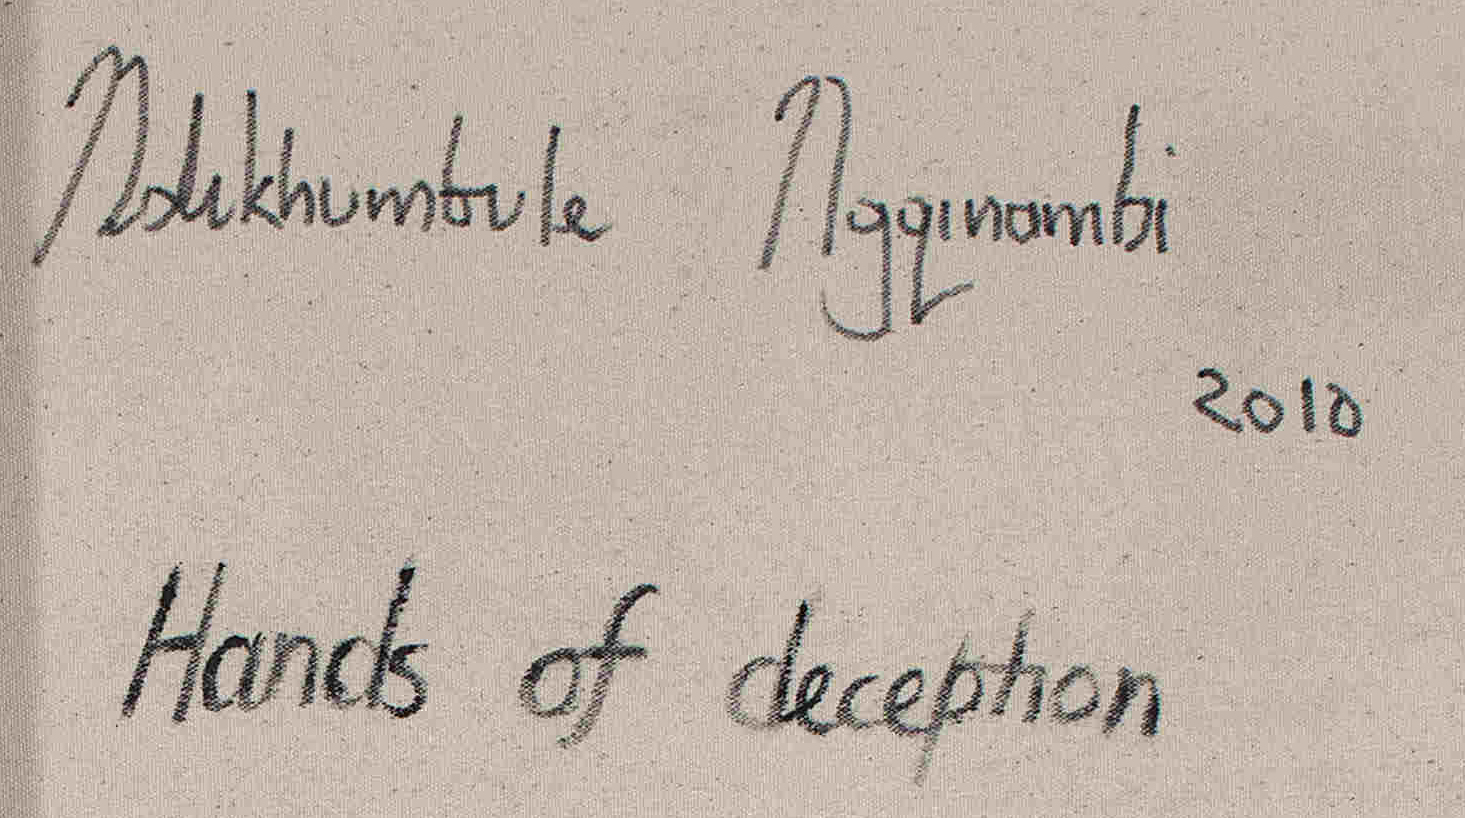 Ndikhumbule Ngqinambi
2010
Hands of deception